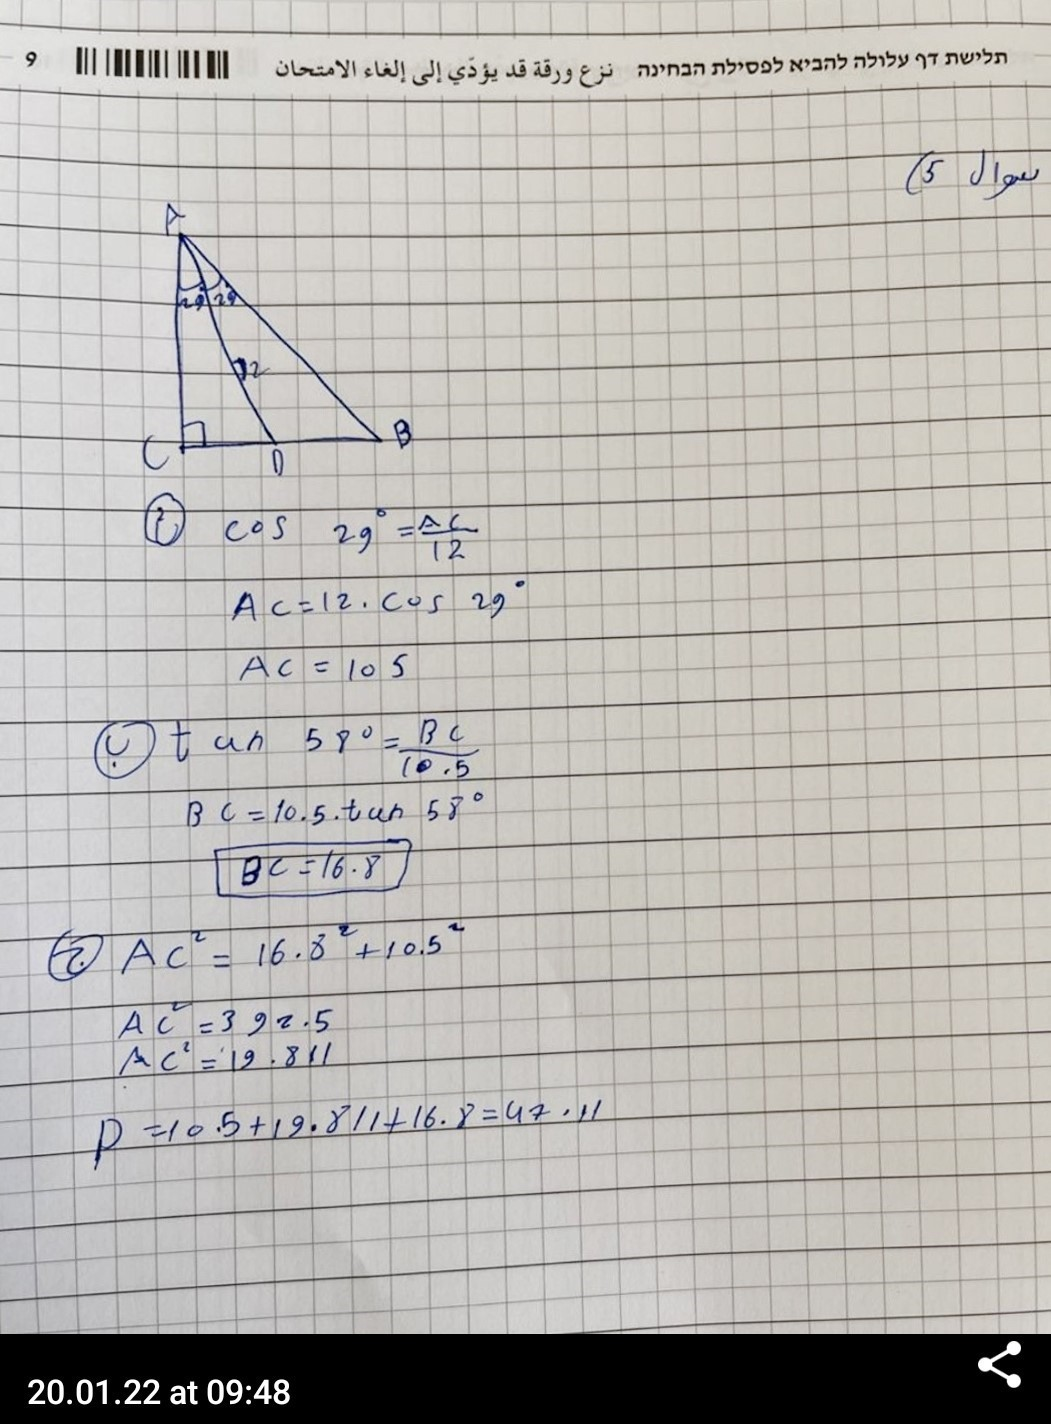 תלישת דף עלולה להביא לפסילת הבחינה نزع ورقة قد يؤدّي إلى إلغاء الامتحان 9
سوال 5)
A
29° 29°
12
C D B
أ cos 29° = AC/12
AC = 12 . cos 29°
AC = 10 5
ب tan 58° = BC/10.5
BC = 10.5 . tan 58°
BC = 16.8
ج AC² = 16.8² + 10.5²
AC² = 392.5
AC² = 19.811
P = 10.5 + 19.811 + 16.8 = 47.11
20.01.22 at 09:48